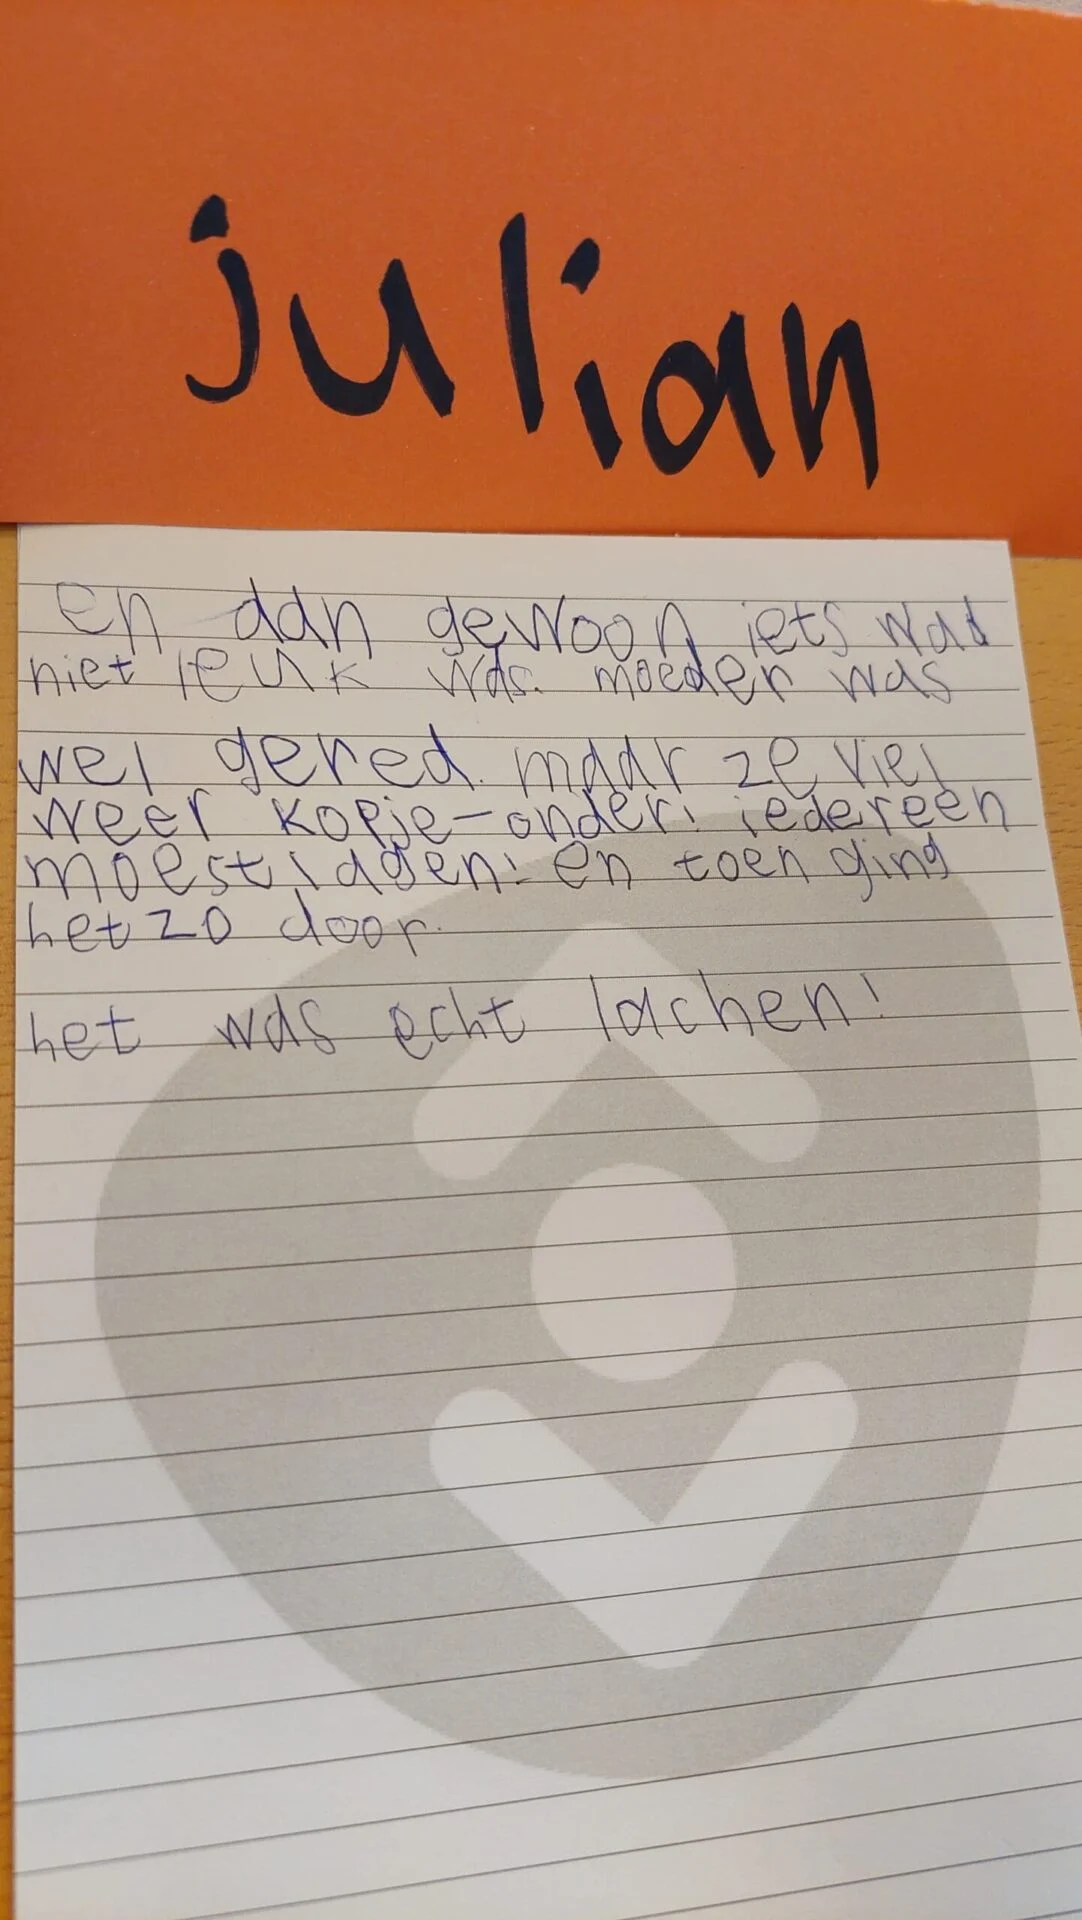 julian
en dan gewoon iets wat
niet leuk was. moeder was
wel gered. maar ze viel
weer kopje-onder! iedereen
moest lagen! en toen ging
het zo door.
het was echt lachen!